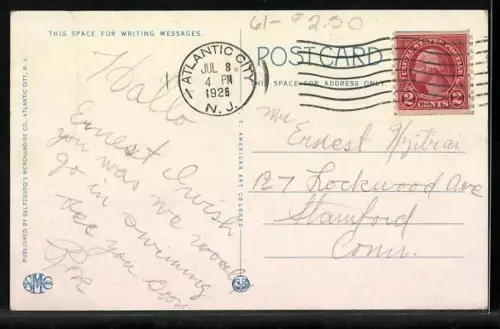 61- $2.50
THIS SPACE FOR WRITING MESSAGES.
POST CARD
THIS SPACE FOR ADDRESS ONLY.
ATLANTIC CITY
JUL 8
4 PM
1926
N. J.
UNITED STATES POSTAGE
2 CENTS 2
Hallo
Ernest I wish
you was we would
go in swiming
see you soon
Mr
Ernest
127 Lockwood Ave
Stamford
Conn.
PUBLISHED BY SALTZBURG'S MERCHANDISE CO., ATLANTIC CITY, N. J.
AMERICAN ART COLORED
SMC